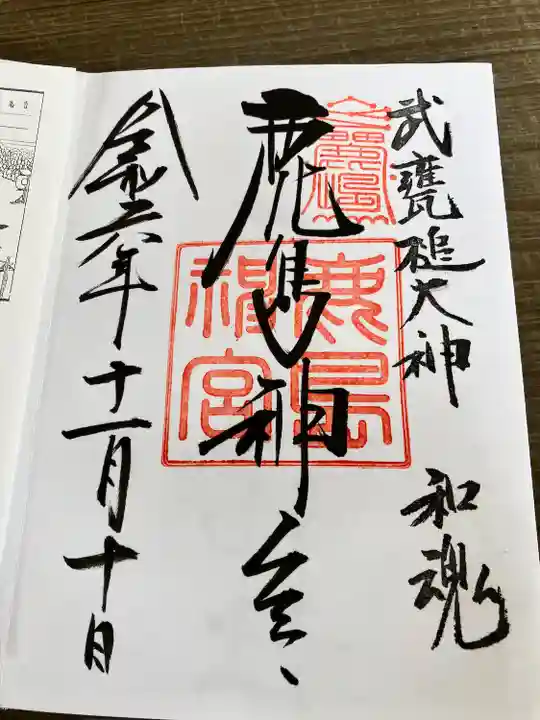 武甕槌大神 和魂
鹿島神宮
鹿島神宮
令和六年十一月十日